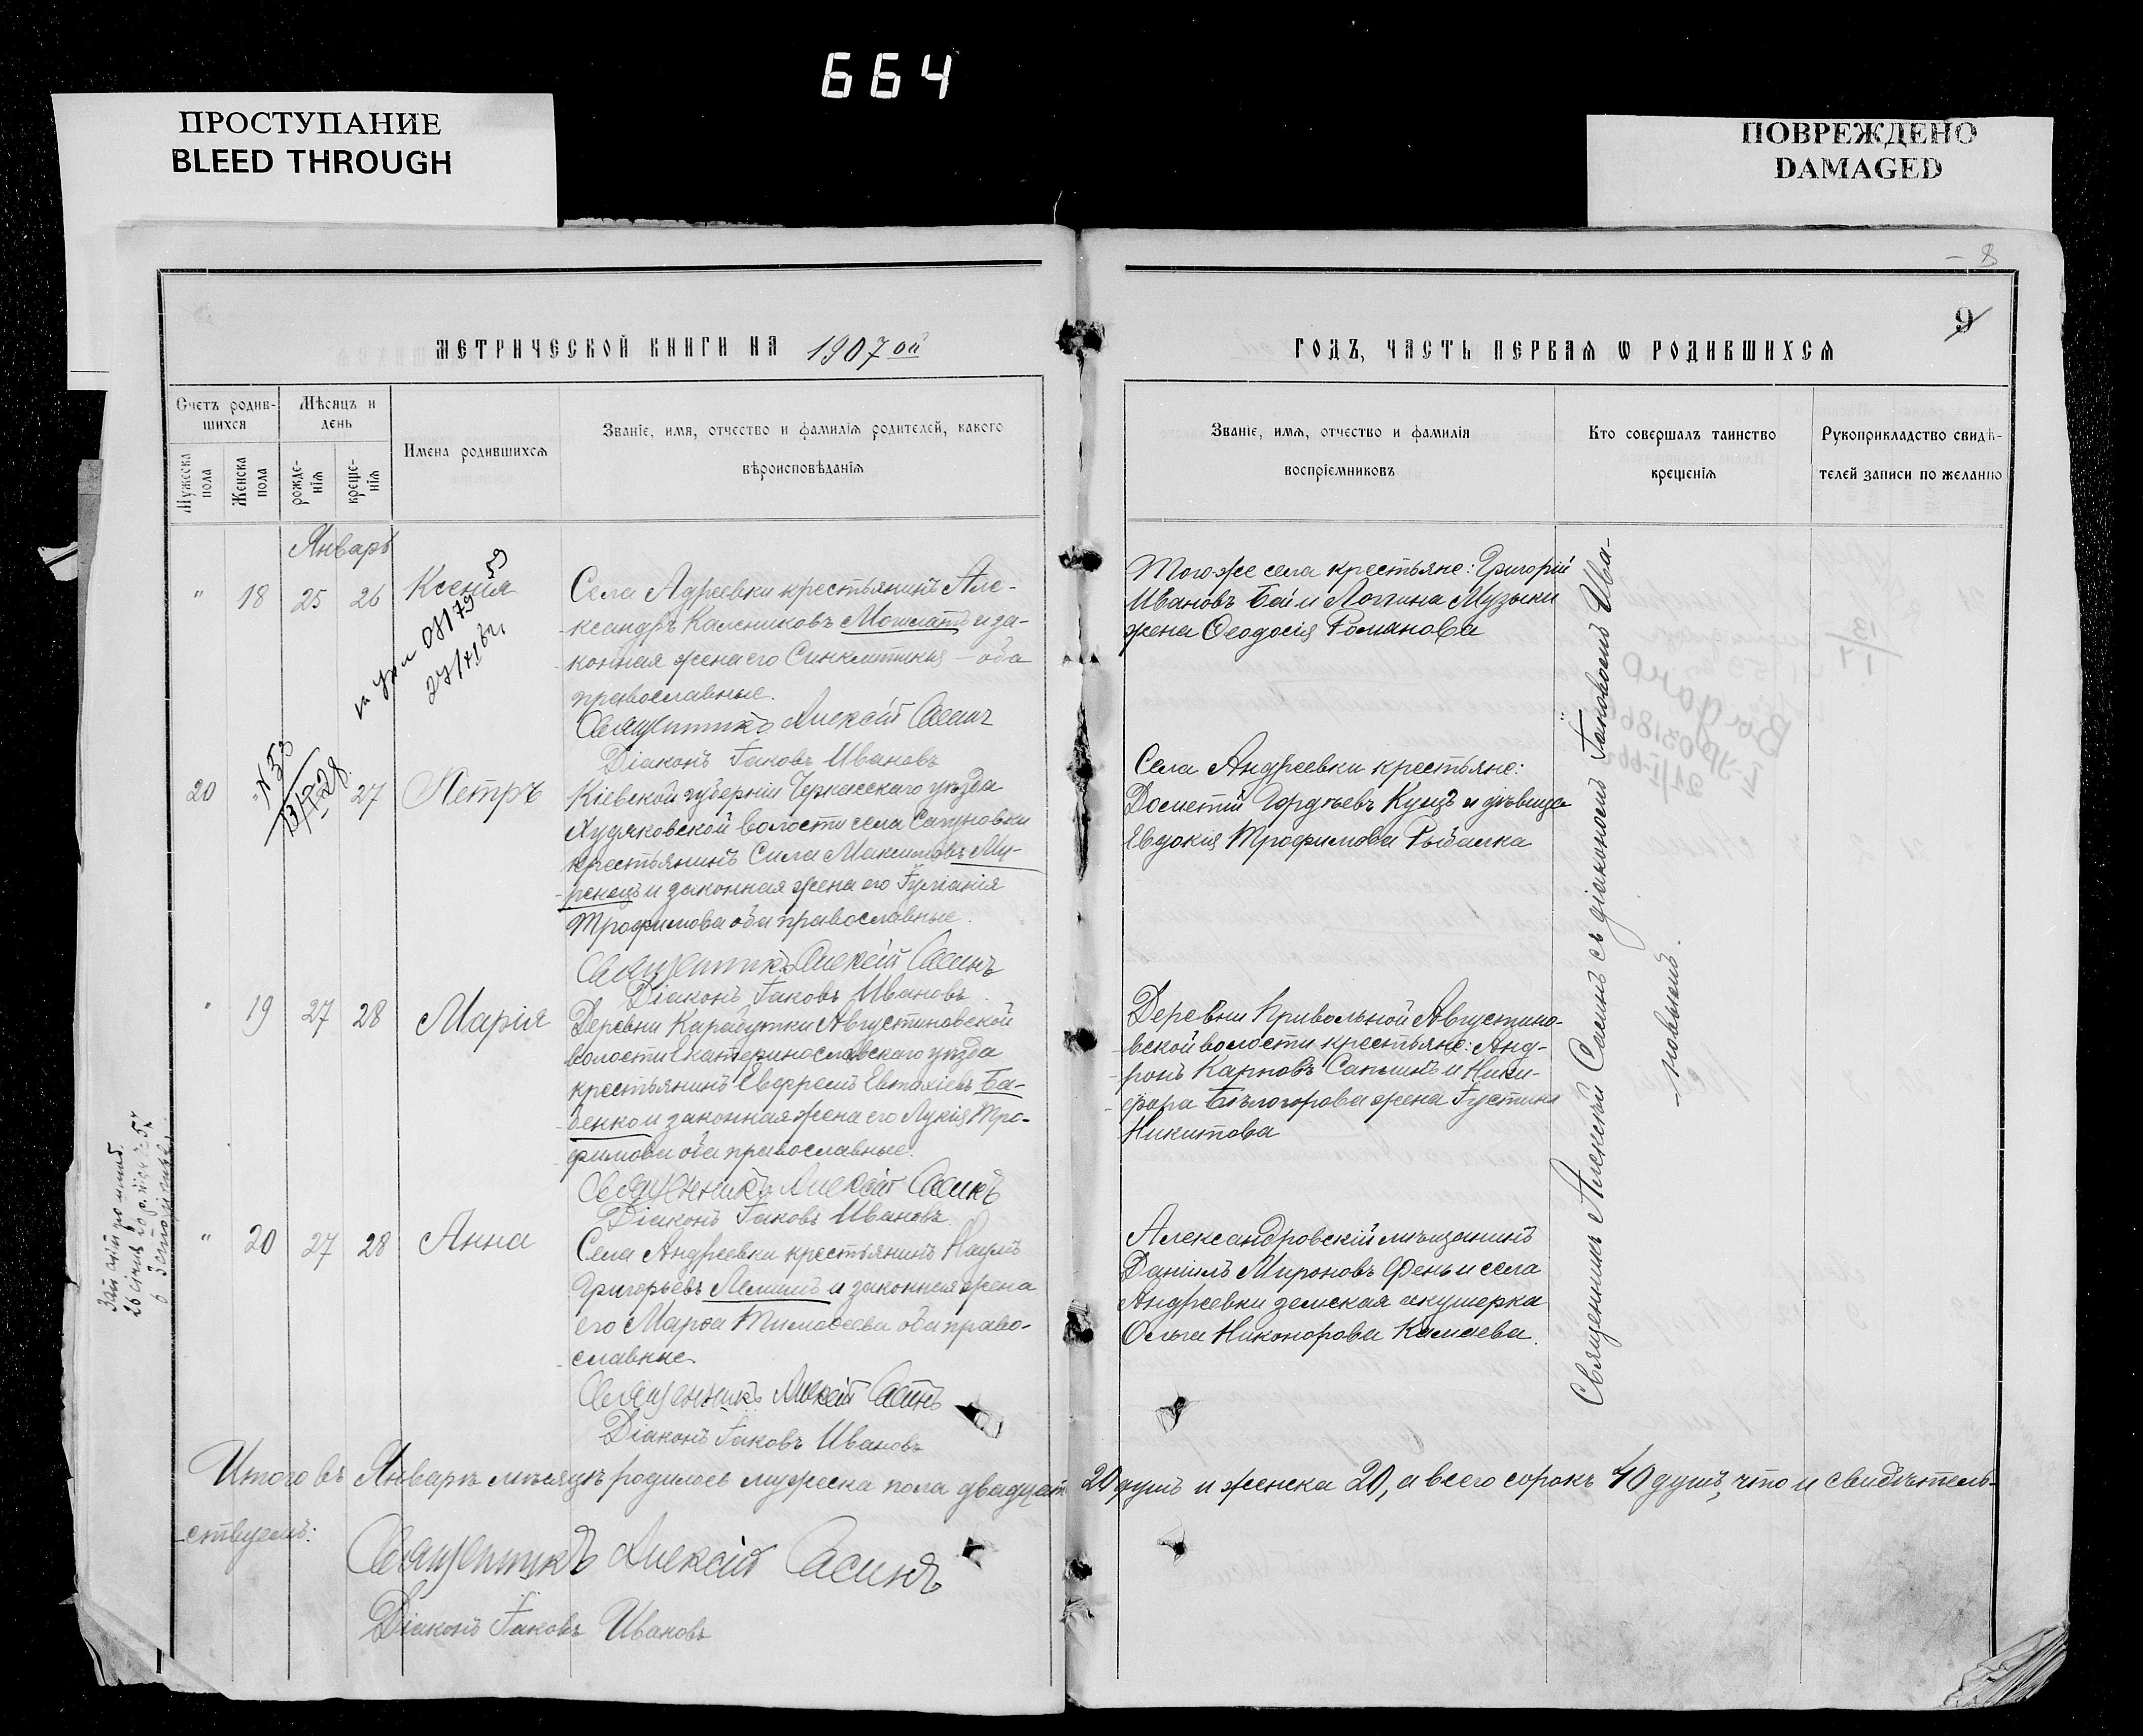 664
ПРОСТУПАНИЕ
BLEED THROUGH
ПОВРЕЖДЕНО
DAMAGED
8
9
МЕТРИЧЕСКОЙ КНИГИ НА 1907 ой
ГОДЪ, ЧАСТЬ ПЕРВАѦ Ѡ РОДИВШИХСѦ
Счетъ родив-
шихся
Мѣсяцъ и
день
Имена родившихсѧ
Званіе, имя, отчество и фамилія родителей, какого
вѣроисповѣданія
Мужеска
пола
Женска
пола
рожде-
нія
креще-
нія
Званіе, имѧ, отчество и фамилія
воспріемниковъ
Кто совершалъ таинство
крещенія
Рукоприкладство свидѣ-
телей записи по желанію
Январь
" 18 25 26 Ксенія
Села Адреевки крестьянинъ Але-
ксандръ Калениковъ и за-
конная жена его Синклитикія – оба
православные.
Священникъ Алексій Сасинъ
Діаконъ Іаковъ Ивановъ
Того же села крестьяне: Григорій
Ивановъ Бай и Логгина Музыки
жена Ѳеодосія Романова
20 27 Петръ
Кіевской губерніи Черкасскаго уѣзда
Худяковской волости села Сагуновки
крестьянинъ Сила Максимовъ Му-
ренецъ и законная жена его Іуліанія
Трофимова оба православные.
Священникъ Алексій Сасинъ
Діаконъ Іаковъ Ивановъ
Села Андреевки крестьяне:
Дометій Гордѣевъ Куцъ и дѣвица
Евдокія Трофимова Рыбалка
" 19 27 28 Марія
Деревни Карабутки Августиновской
волости Екатеринославскаго уѣзда
крестьянинъ Евфремъ Евтихіевъ Ба-
бенко и законная жена его Лукія Тро-
фимова оба православные.
Священникъ Алексій Сасинъ
Діаконъ Іаковъ Ивановъ
Деревни Привольной Августино-
вской волости крестьяне: Анд-
ронъ Карповъ Сапминъ и Ники-
фора Бѣлогорова жена Іустина
Никитова
" 20 27 28 Анна
Села Андреевки крестьянинъ Наумъ
Григорьевъ и законная жена
его Марѳа Тимоѳеева оба право-
славные.
Священникъ Алексій Сасинъ
Діаконъ Іаковъ Ивановъ
Александровскій мѣщанинъ
Даніилъ Мироновъ Фень и села
Андреевки земская акушерка
Ольга Никонорова Камаева.
Священникъ Алексій Сасинъ съ діакономъ Іаковомъ Ива-
новымъ.
Итого въ Январѣ мѣсяцѣ родилось мужеска пола двадцать 20 душъ и женска 20, а всего сорокъ 40 душъ, что и свидѣтель-
ствуемъ:
Священникъ Алексій Сасинъ
Діаконъ Іаковъ Ивановъ